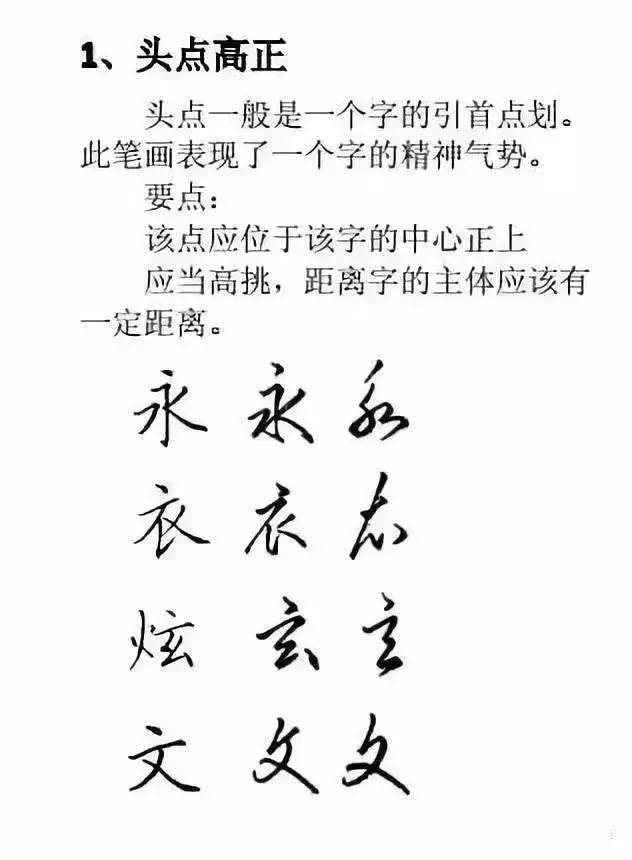 1、头点高正
头点一般是一个字的引首点划。
此笔画表现了一个字的精神气势。
要点：
该点应位于该字的中心正上
应当高挑，距离字的主体应该有
一定距离。
永 永 永
衣 衣 衣
炫 玄 玄
文 文 文